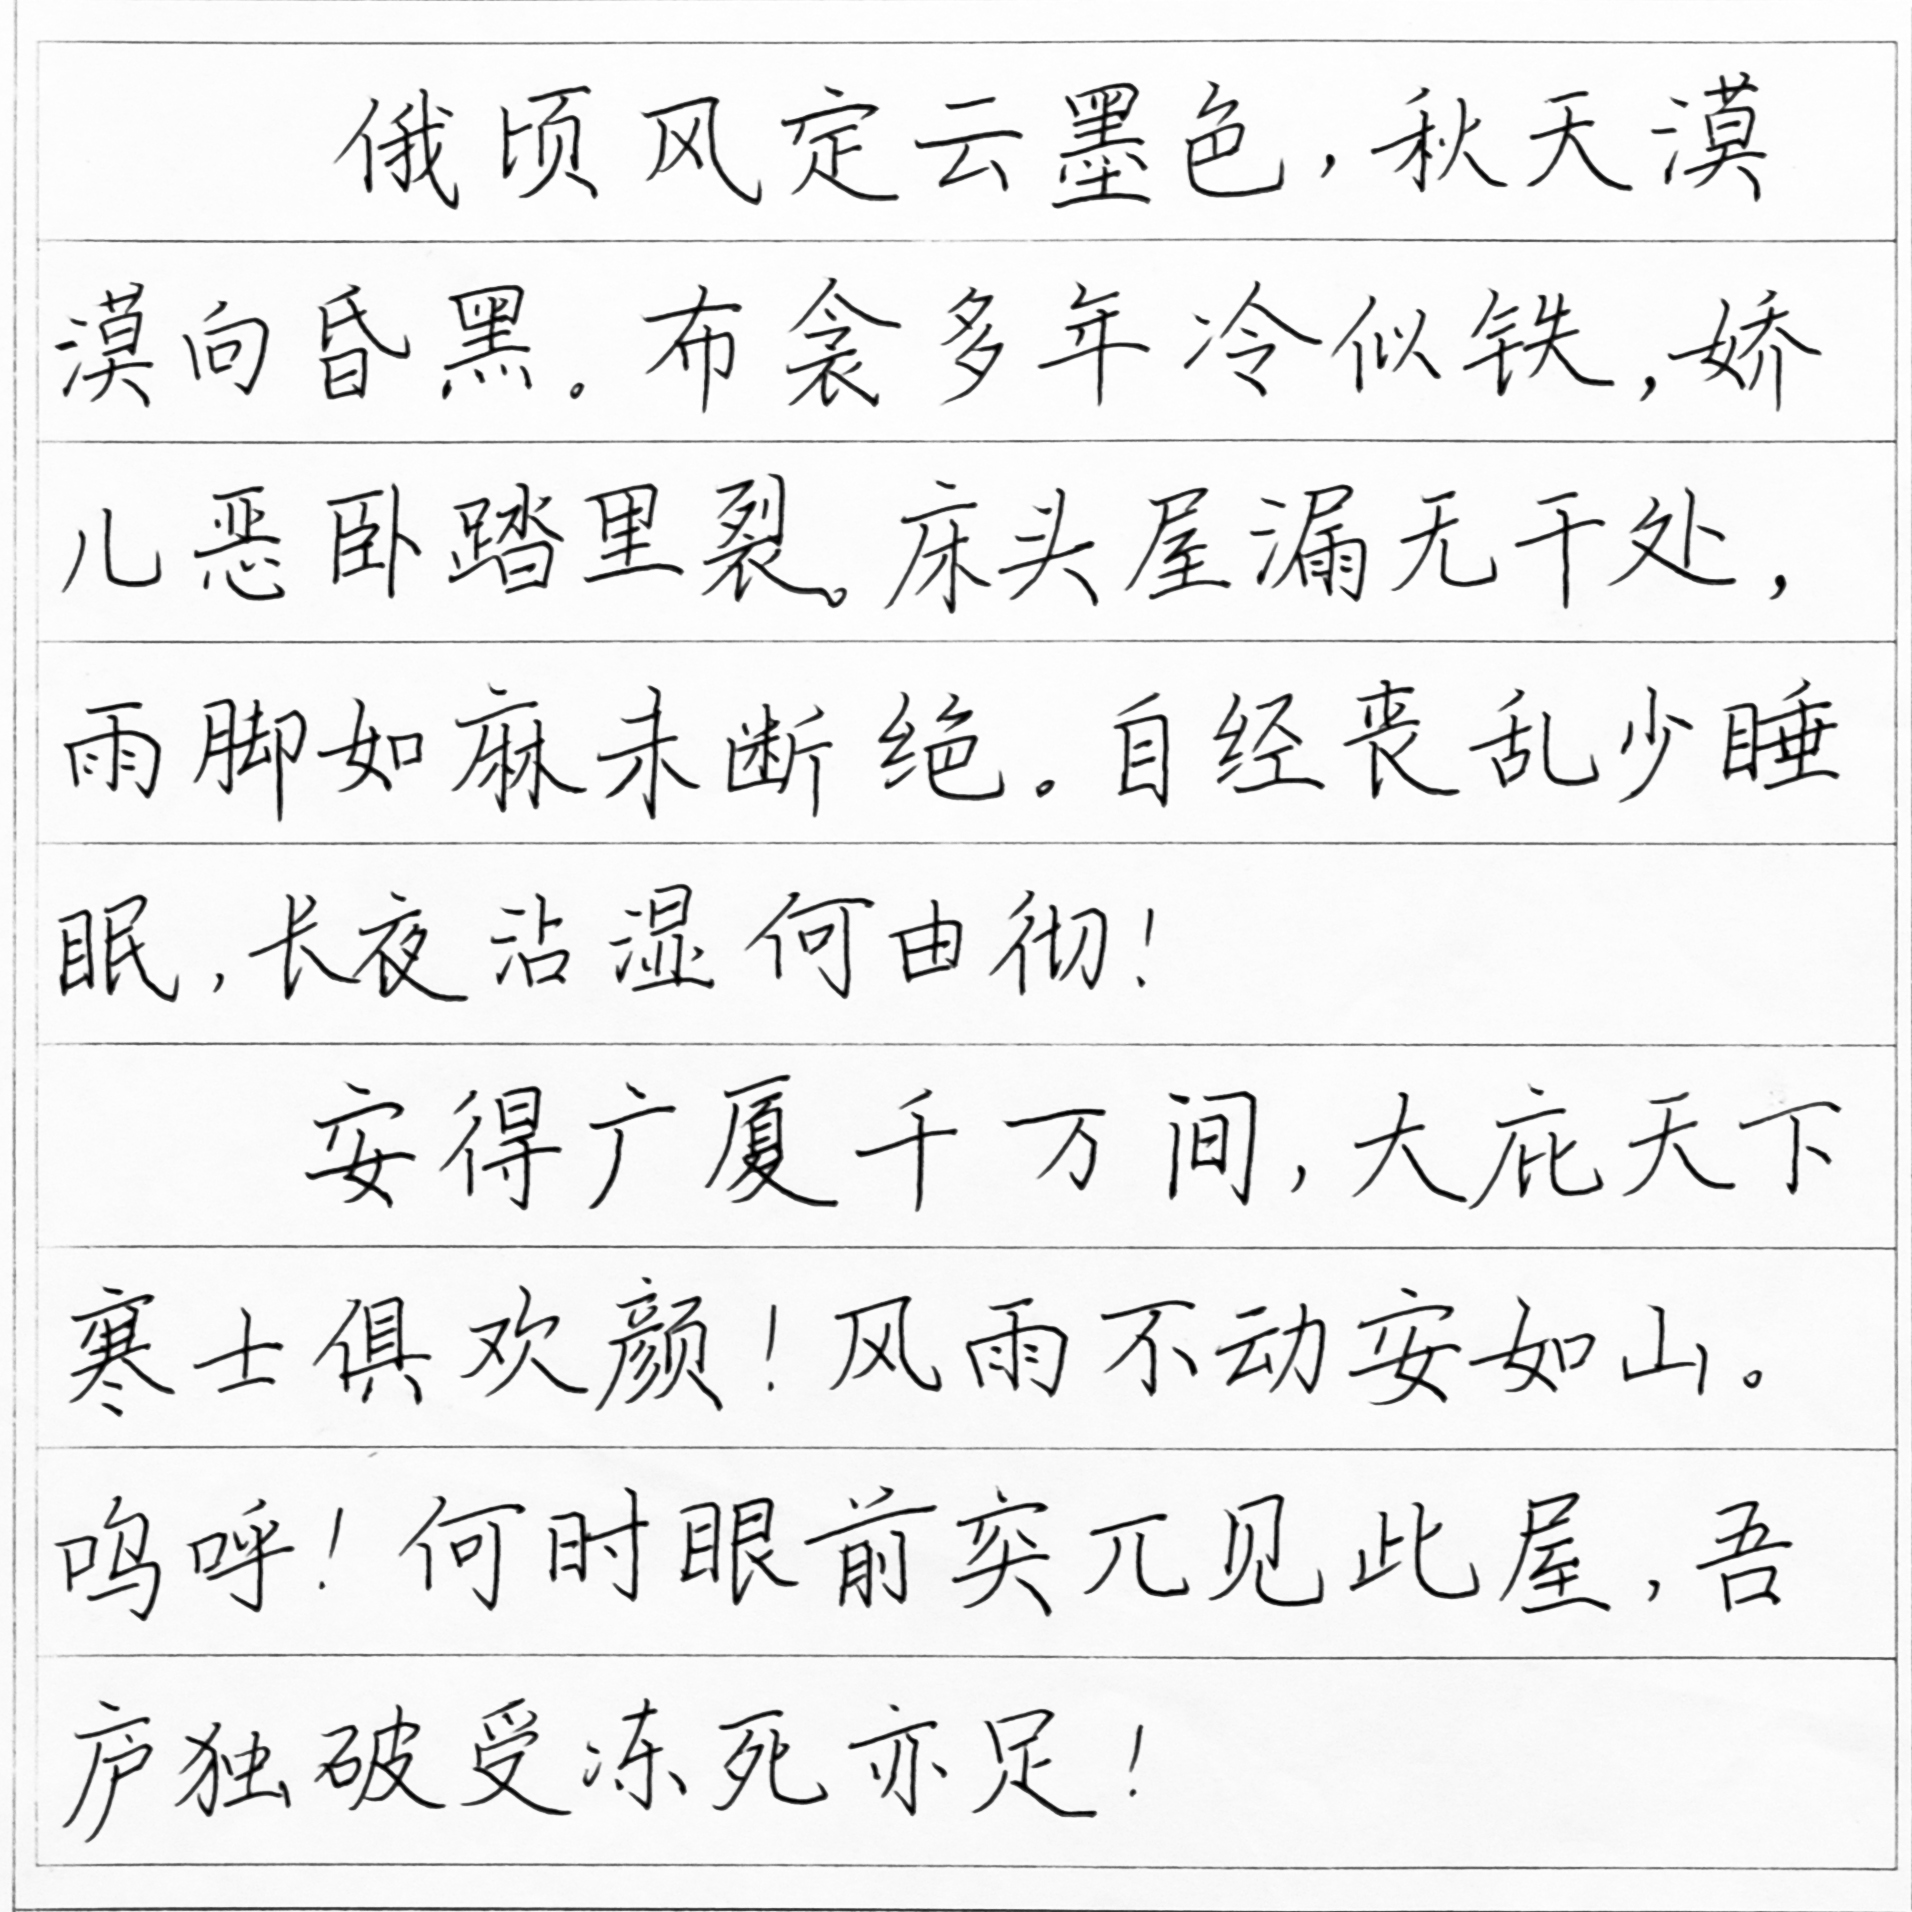 俄顷风定云墨色，秋天漠
漠向昏黑。布衾多年冷似铁，娇
儿恶卧踏里裂。床头屋漏无干处，
雨脚如麻未断绝。自经丧乱少睡
眠，长夜沾湿何由彻！
安得广厦千万间，大庇天下
寒士俱欢颜！风雨不动安如山。
呜呼！何时眼前突兀见此屋，吾
庐独破受冻死亦足！